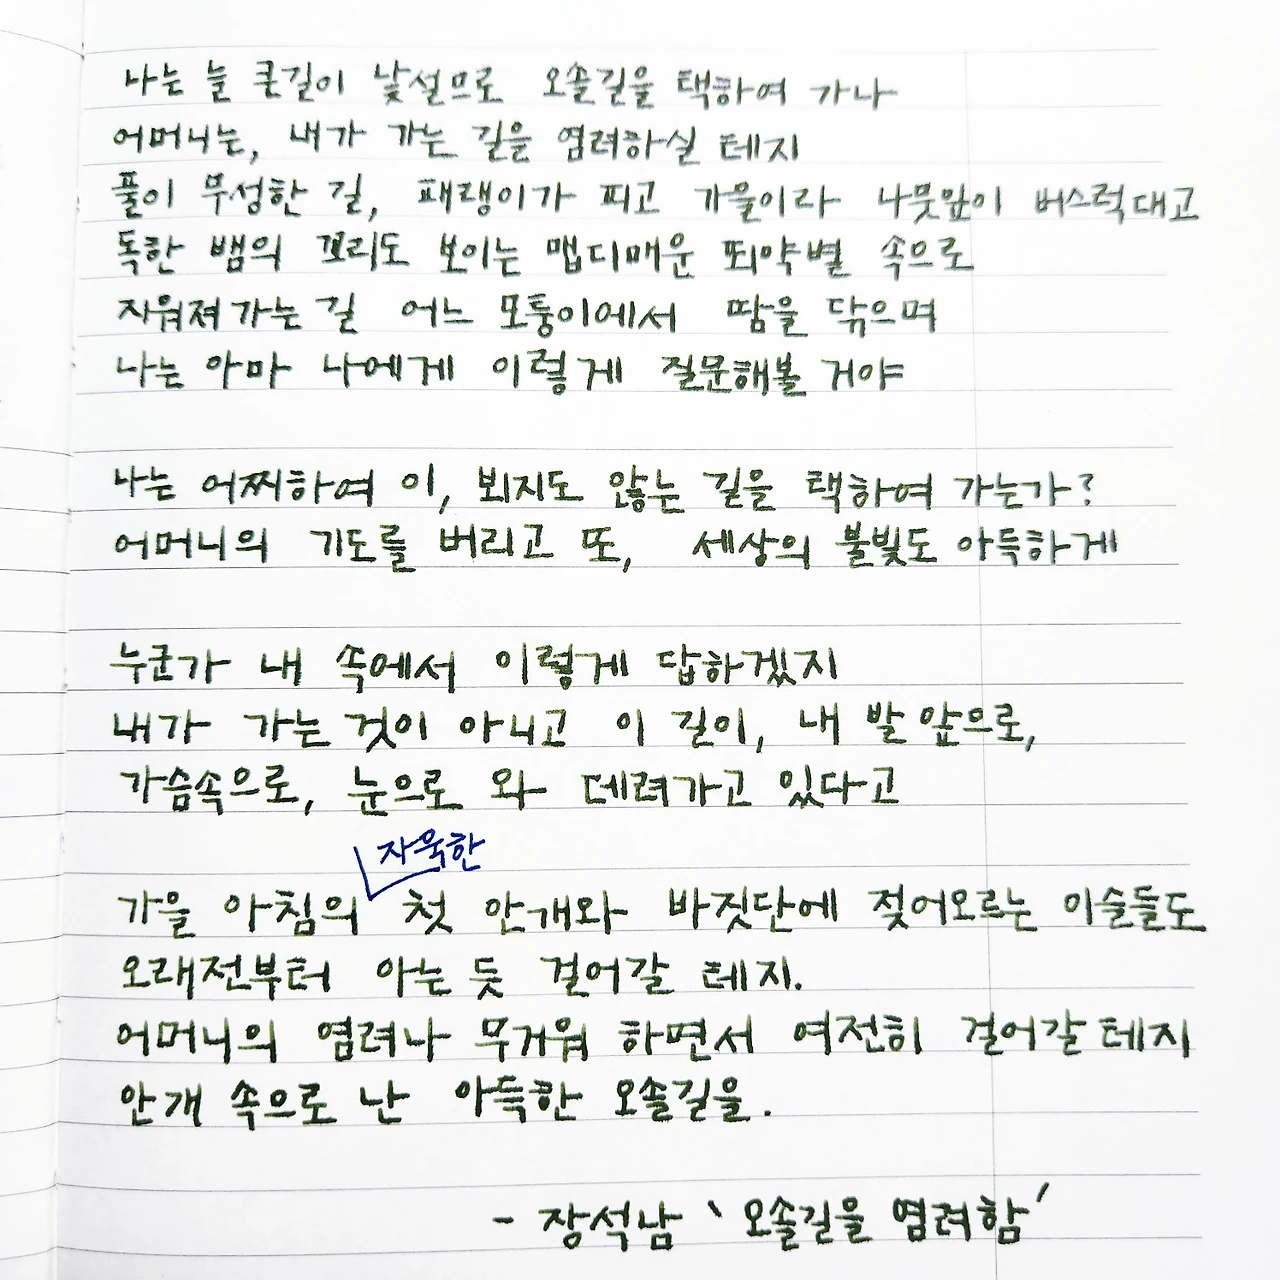 나는 늘 큰길이 낯설므로 오솔길을 택하여 가나
어머니는, 내가 가는 길을 염려하실 테지
풀이 무성한 길, 패랭이가 피고 가을이라 나뭇잎이 버스럭대고
독한 뱀의 꼬리도 보이는 맵디매운 뙤약볕 속으로
지워져가는 길 어느 모퉁이에서 땀을 닦으며
나는 아마 나에게 이렇게 질문해볼 거야

나는 어찌하여 이, 뵈지도 않는 길을 택하여 가는가?
어머니의 기도를 버리고 또, 세상의 불빛도 아득하게

누군가 내 속에서 이렇게 답하겠지
내가 가는 것이 아니고 이 길이, 내 발 앞으로,
가슴속으로, 눈으로 와 데려가고 있다고

자욱한
가을 아침의 첫 안개와 바짓단에 젖어오르는 이슬들도
오래전부터 아는 듯 걸어갈 테지.
어머니의 염려나 무거워 하면서 여전히 걸어갈 테지
안개 속으로 난 아득한 오솔길을.

- 장석남 '오솔길을 염려함'